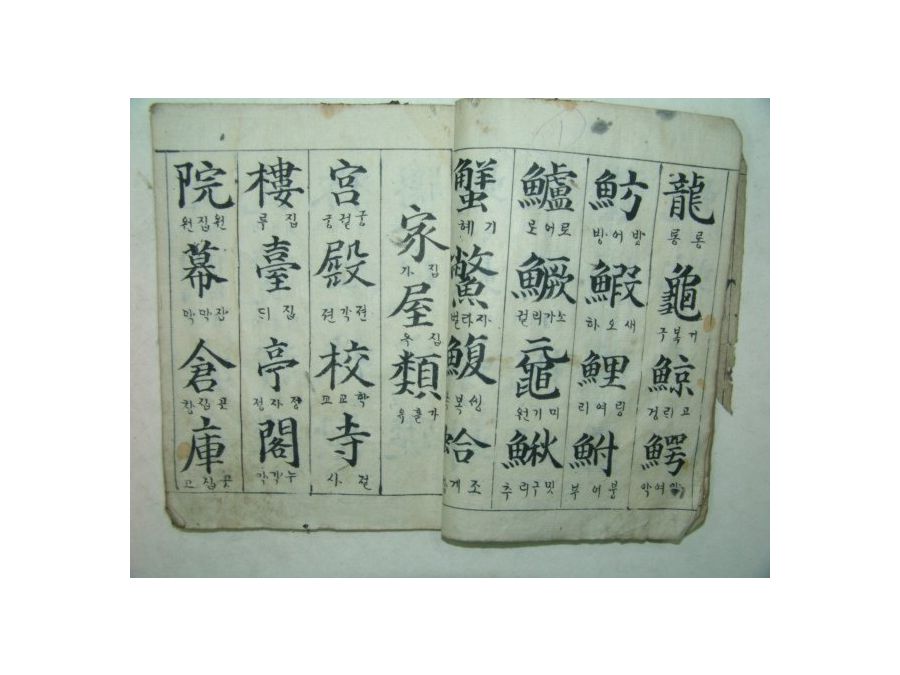 龍
룡룡
龜
거북구
鯨
鰐
魴
방어방
鰕
새오하
鯉
링여리
鮒
붕어부
鱸
로어로
鱖
소가리궐
黿
鰍
밋구리추
蟹
기헤
鱉
자라별
鰒
蛤
조개
家
집가
屋
집옥
類
宮
궁궐궁
殿
전각전
校
학교교
寺
절사
樓
집루
臺
집듸
亭
정자정
閣
누각각
院
원집원
幕
장막막
倉
곳집창
庫
곳집고